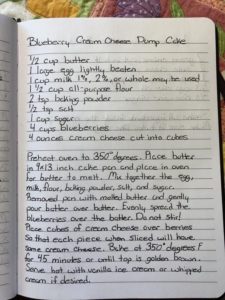 Blueberry Cream Cheese Dump Cake
1/2 cup butter
1 large egg lightly beaten
1 cup milk 1%, 2%, or whole may be used
1 1/2 cup all-purpose flour
2 tsp baking powder
1/2 tsp salt
1 cup sugar
4 cups blueberries
4 ounces cream cheese cut into cubes
Preheat oven to 350° degrees. Place butter
in 9x13 inch cake pan and place in oven
for butter to melt. Mix together the egg,
milk, flour, baking powder, salt, and sugar.
Removed pan with melted butter and gently
pour batter over butter. Evenly spread the
blueberries over the batter. Do not stir!
Place cubes of cream cheese over berries
so that each piece when sliced will have
some cream cheese. Bake at 350° degrees F
for 45 minutes or until top is golden brown.
Serve hot with vanilla ice cream or whipped
cream if desired.